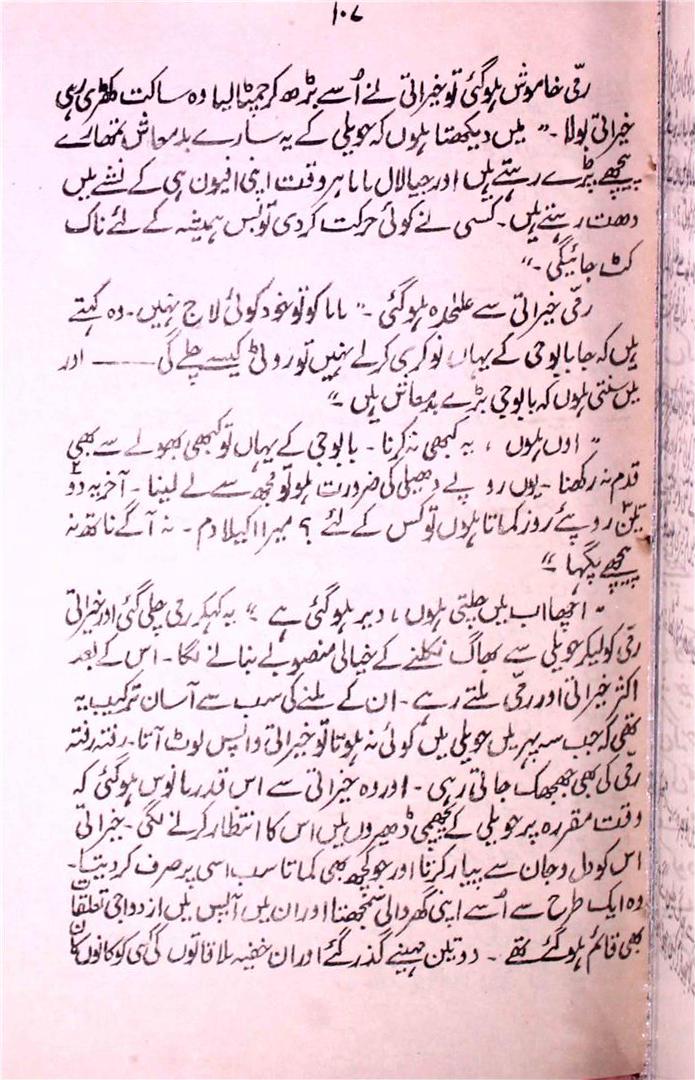 ۱۰۷
رمّی خاموش ہو گئی تو خیراتی نے اُسے بڑھ کر چمٹا لیا وہ ساکت کھڑی رہی
خیراتی بولا ۔ " میں دیکھتا ہوں کہ حویلی کے یہ سارے بدمعاش تمھارے
پیچھے پڑے رہتے ہیں اور جیالال بابا ہر وقت اپنی افیون ہی کے نشے میں
دھت رہتے ہیں ۔ کسی نے کوئی حرکت کر دی تو بس ہمیشہ کے لئے ناک
کٹ جائیگی ۔"
رمّی خیراتی سے علیٰحدہ ہو گئی ۔ " بابا کو تو خود کوئی لاج نہیں ۔ وہ کہتے
ہیں کہ جا بابوجی کے یہاں نوکری کرلے نہیں تو روٹی کیسے چلے گی ــــــ اور
میں سنتی ہوں کہ بابوجی بڑے بدمعاش ہیں ۔"
" اوں ہوں ، یہ کبھی نہ کرنا ۔ بابوجی کے یہاں تو کبھی بھولے سے بھی
قدم نہ رکھنا ۔ یوں روپے دھیلی کی ضرورت ہو تو مجھ سے لے لینا ۔ آخر یہ دو
تین روپئے روز کماتا ہوں تو کس کے لئے ؟ میرا اکیلا دم ۔ نہ آگے ناتھ نہ
پیچھے پگہا ۔"
" اچھا اب میں چلتی ہوں ، دیر ہو گئی ہے ۔" یہ کہکر رمی چلی گئی اور خیراتی
رمّی کو لیکر حویلی سے بھاگ نکلنے کے خیالی منصوبے بنانے لگا ۔ اس کے بعد
اکثر خیراتی اور رمّی ملتے رہے ۔ ان کے ملنے کی سب سے آسان ترکیب یہ
تھی کہ جب سہ پہر میں حویلی میں کوئی نہ ہوتا تو خیراتی واپس لوٹ آتا ۔ رفتہ رفتہ
رمّی کی بھی جھجھک جاتی رہی ۔ اور وہ خیراتی سے اس قدر مانوس ہو گئی کہ
وقت مقررہ پر حویلی کے پچھمی ڈھیروں میں اس کا انتظار کرنے لگی ۔ خیراتی
اس کو دل و جان سے پیار کرتا اور جو کچھ بھی کماتا سب اسی پر صرف کر دیتا ۔
وہ ایک طرح سے اُسے اپنی گھر والی سمجھتا اور ان میں آپس میں ازدواجی تعلقات
بھی قائم ہو گئے تھے ۔ دو تین مہینے گذر گئے اور ان خفیہ ملاقاتوں کی کسی کو کانوں کان